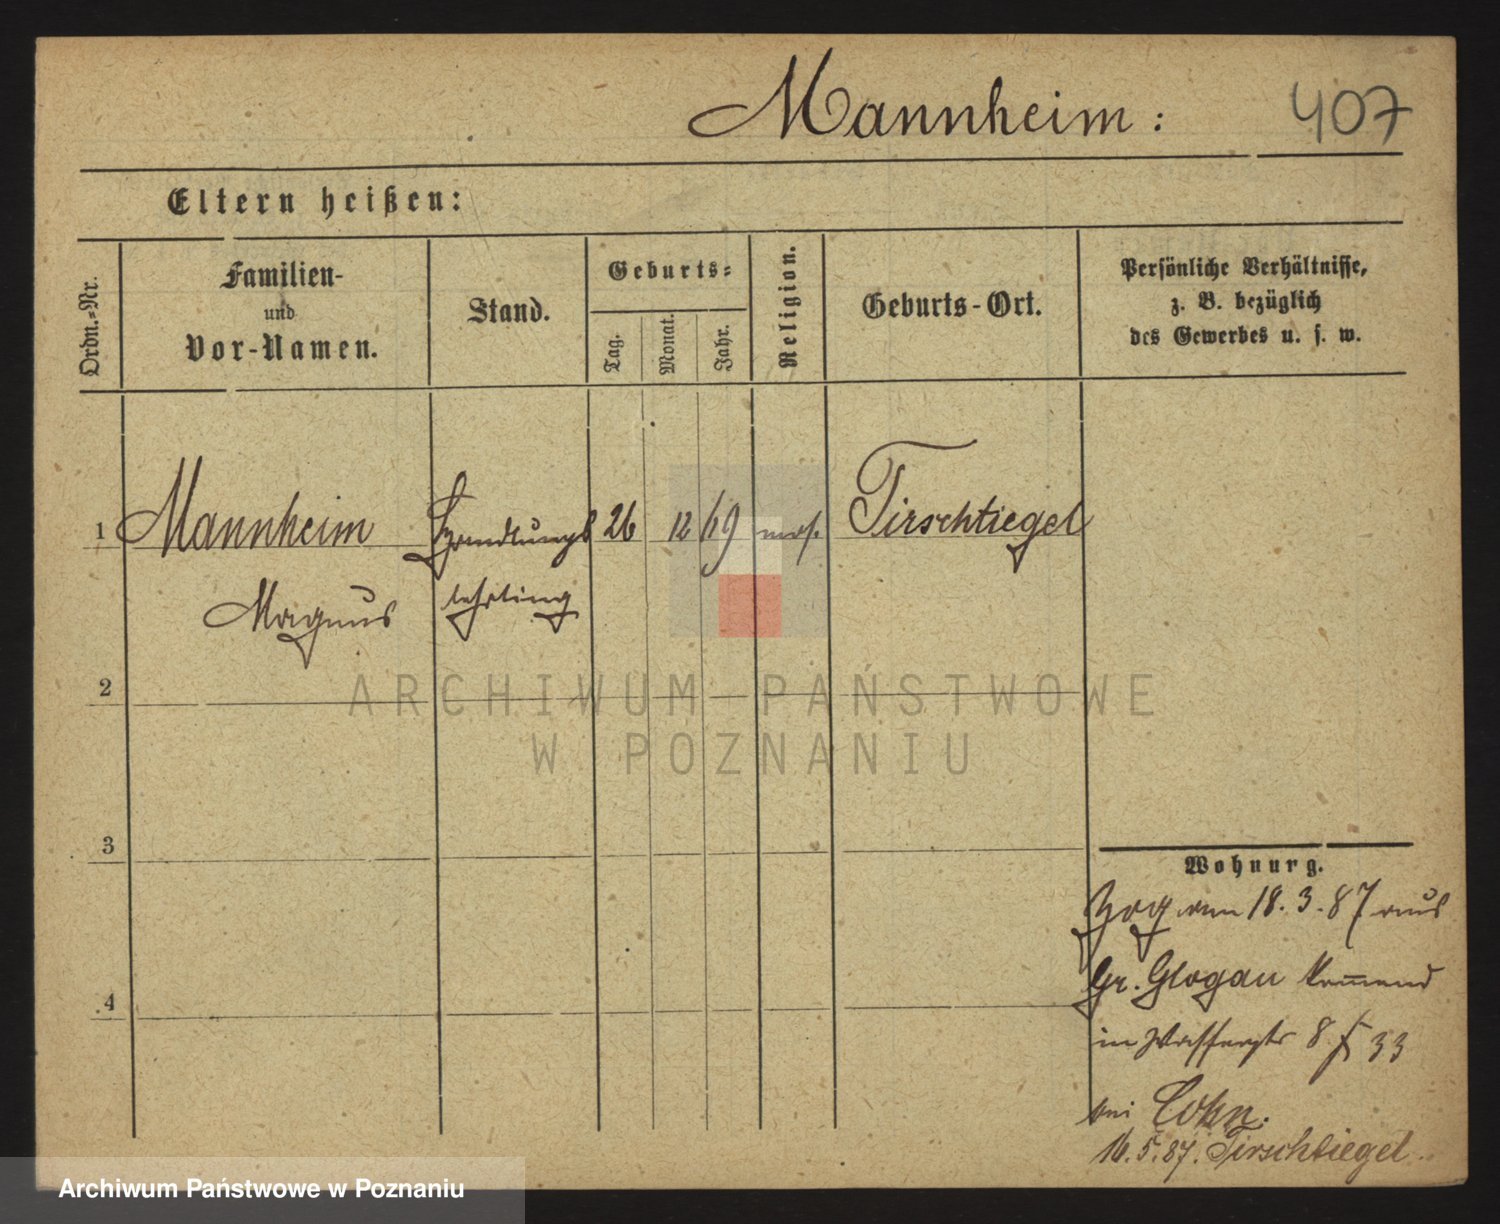 Mannheim: 407
Eltern heißen:
Ordn.=Nr.
Familien-
und
Vor-Namen.
Stand.
Geburts=
Tag.
Monat.
Jahr.
Religion.
Geburts-Ort.
Persönliche Verhältnisse,
z. B. bezüglich
des Gewerbes u. s. w.
1 Mannheim Handlungs 26 12 69 mos. Tirschtiegel
Magnus lehrling
2
3
4
Wohnurg.
Zog am 18. 3. 87 aus
Gr. Glogau kommend
in 8. 33
bei Cohn.
16. 5. 87. Tirschtiegel.
ARCHIWUM PAŃSTWOWE
W POZNANIU
Archiwum Państwowe w Poznaniu